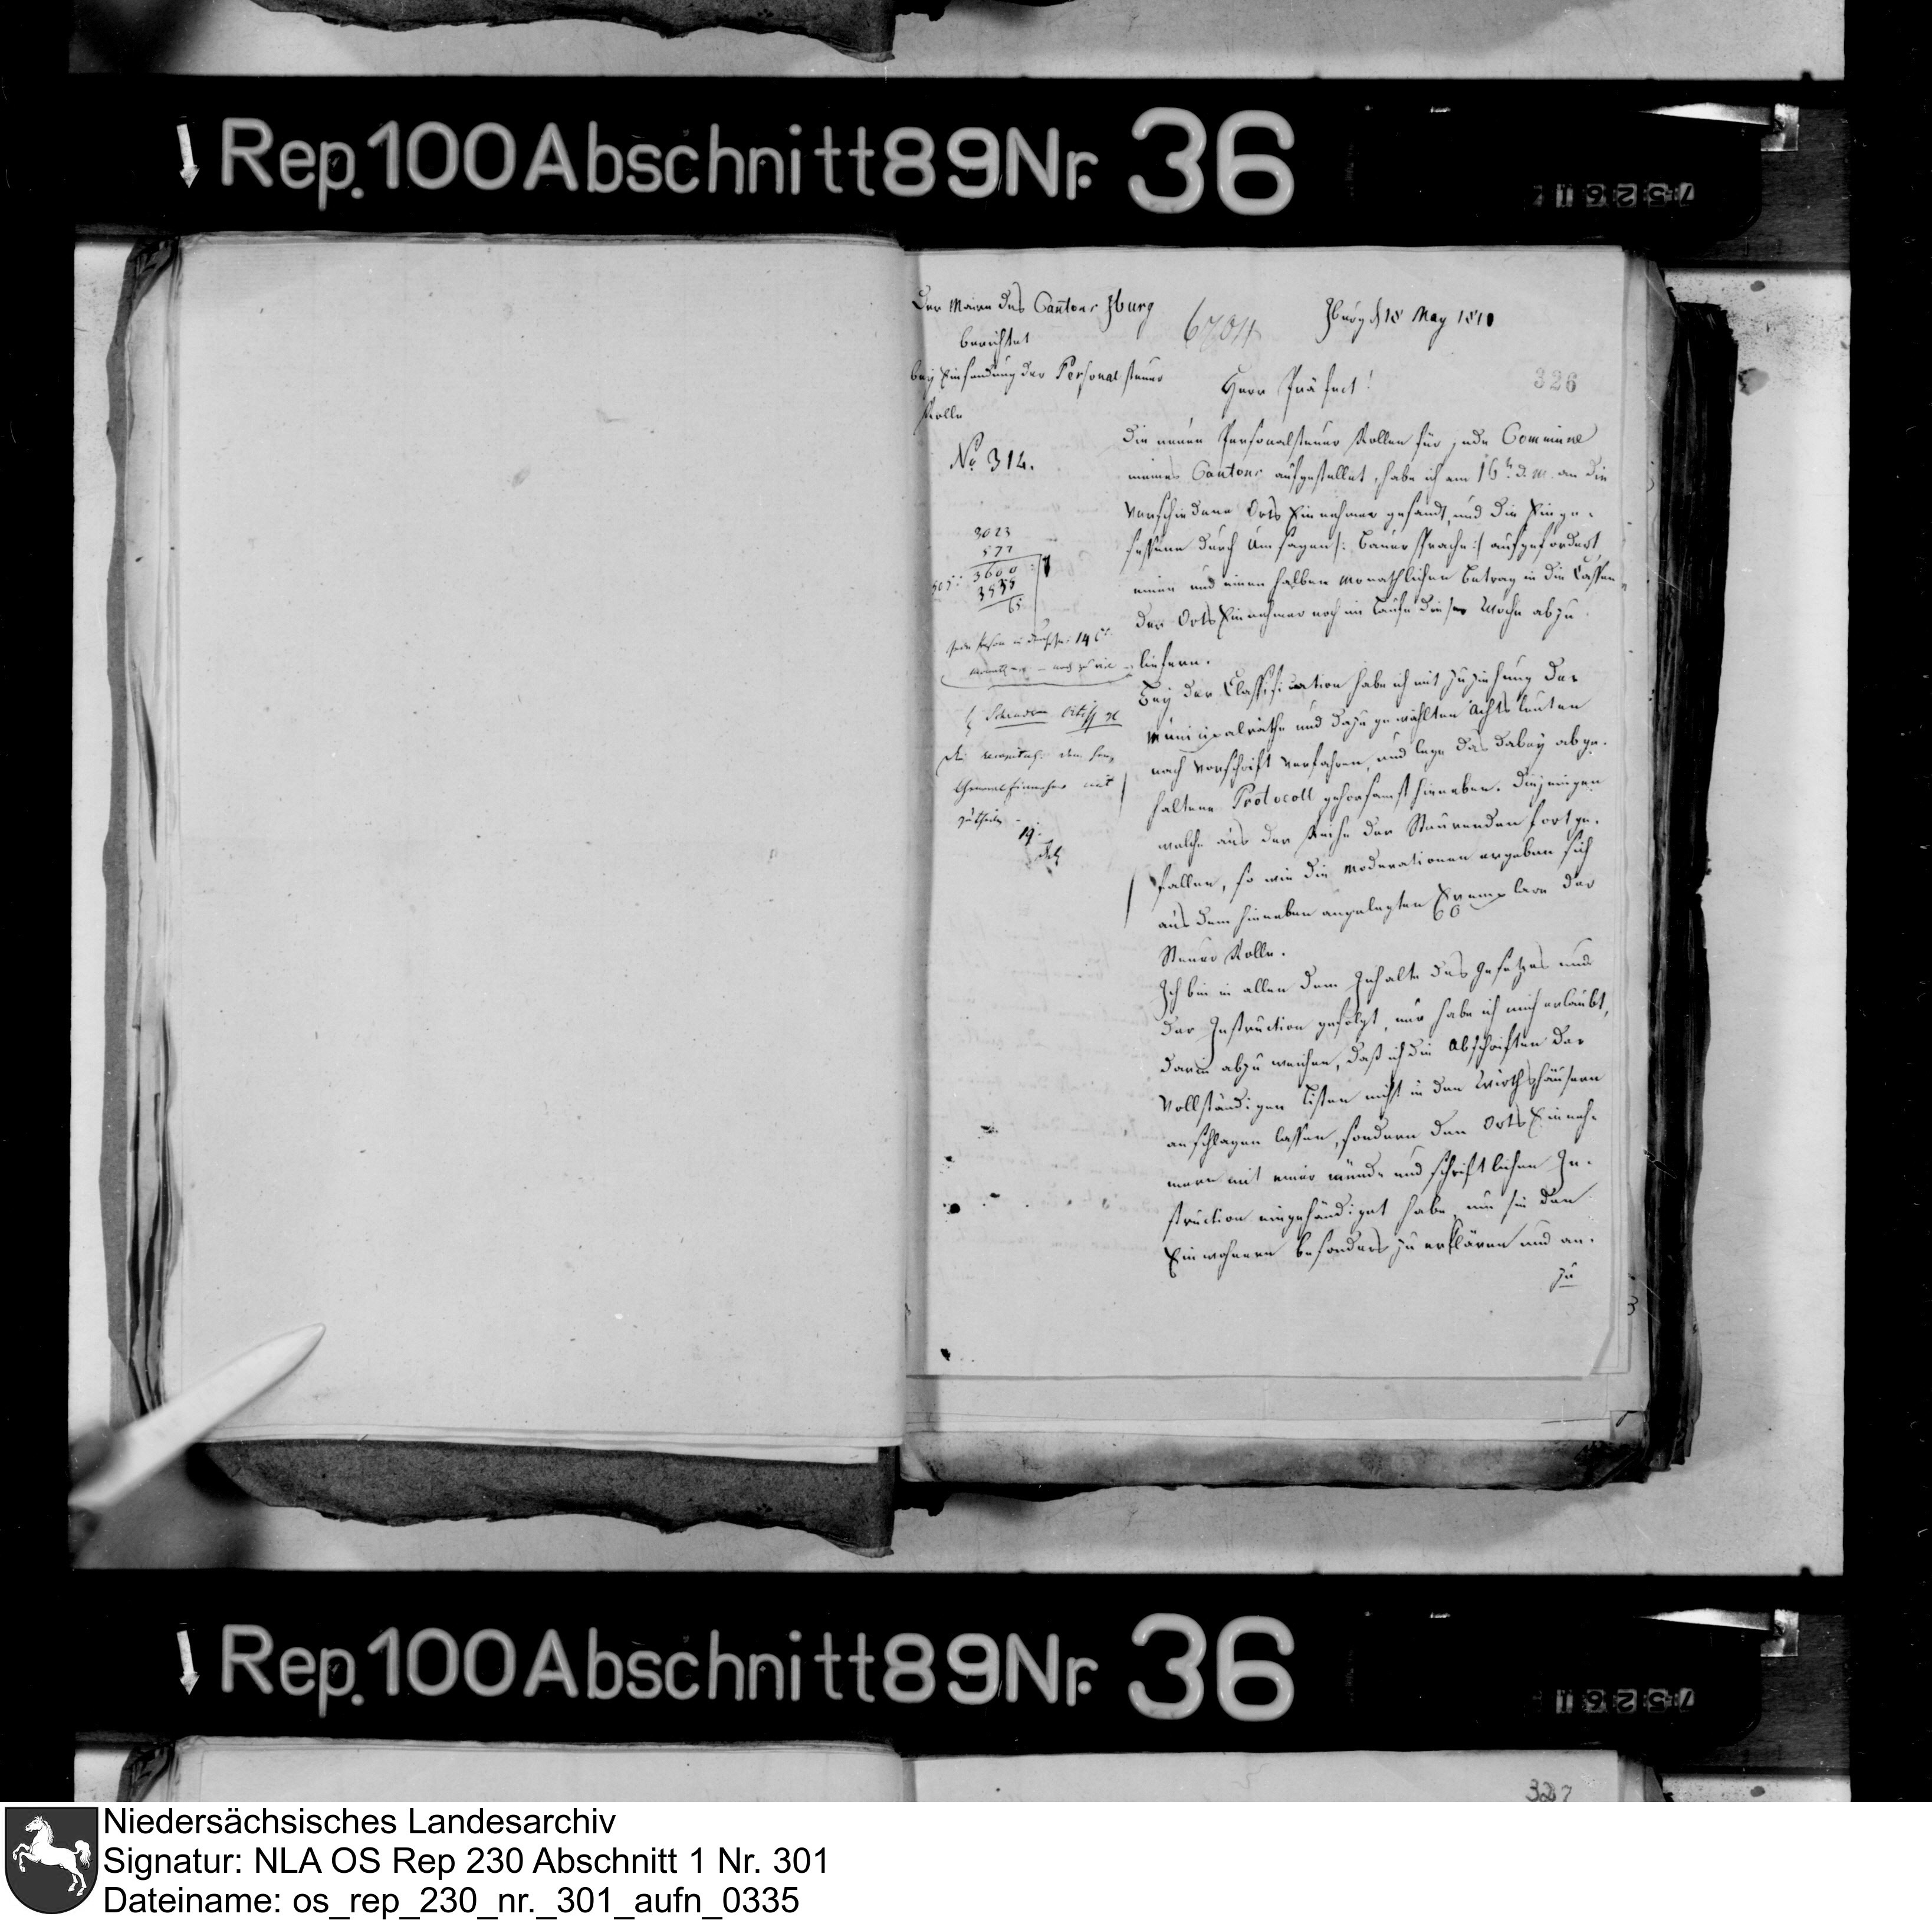 Rep. 100 Abschnitt 89 Nr. 36
75261
Der Maire des Cantons Iburg
berichtet
bey Einsendung der Personalsteuer
Rolle
No 314.
6704
Iburg d 18 May 1810
326
Herr Präfect!
Die neuen Personalsteuer Rollen für jede Commune
meines Cantons aufgestellet, habe ich am 16t d. M. an die
verschiedene Orts Einnehmer gesandt, und die Einge-
sessene durch Umsagen /: Bauersprache :/ aufgefordert,
einen und einen halben monathlichen Betrag in die Cassen
der Orts Einnehmer noch im Laufe dieser Woche abzu
liefern.
Bey der Classification habe ich mit Zuziehung der
Municipalräthe und dazu gewählten Achtsleuten
nach Vorschrift verfahren, und lege das dabey abge-
haltene Protocoll gehorsamst hieneben. Diejenigen
welche aus der Reihe der Steurenden fortge-
fallen, so wie die Moderationen ergeben sich
aus dem hieneben angelegten Exemplare der
Steuer Rolle.
Ich bin in allen dem Inhalte des Gesetzes und
der Instruction gefolgt, nur habe ich mich erlaubt,
darin abzuweichen, daß ich die Abschriften der
vollständigen Listen nicht in den Wirthshäusern
anschlagen lassen, sondern den Orts Einneh-
mern mit einer münd- und schriftlichen In-
struction eingehändiget habe, um sie den
Einwohnern besonders zu erklären und an-
zu
3023
577
3600
3535
65
Rep. 100 Abschnitt 89 Nr. 36
75261
327
Niedersächsisches Landesarchiv
Signatur: NLA OS Rep 230 Abschnitt 1 Nr. 301
Dateiname: os_rep_230_nr._301_aufn_0335